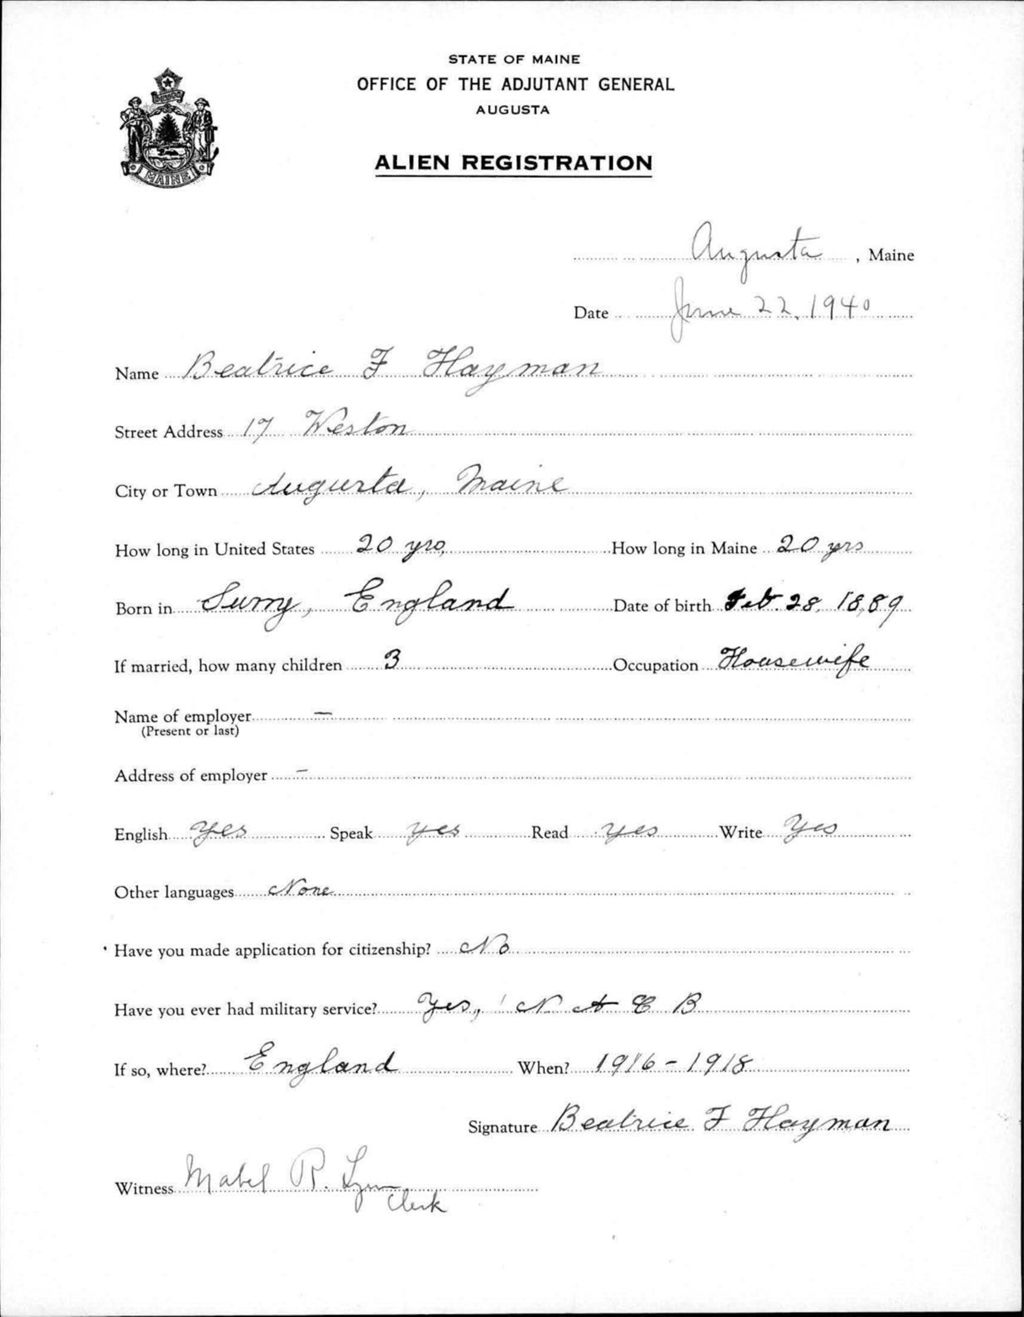 STATE OF MAINE
OFFICE OF THE ADJUTANT GENERAL
AUGUSTA
ALIEN REGISTRATION
MAINE
Augusta, Maine
Date June 22, 1940
Name Beatrice F Hayman
Street Address 17 Weston
City or Town Augusta, Maine
How long in United States 20 yrs. How long in Maine 20 yrs
Born in Surry, England Date of birth Feb. 28, 1889
If married, how many children 3 Occupation Housewife
Name of employer —
(Present or last)
Address of employer –
English Yes Speak yes Read yes Write Yes
Other languages None
Have you made application for citizenship? No
Have you ever had military service? Yes, N A C B
If so, where? England When? 1916 - 1918
Signature Beatrice F Hayman
Witness Mabel R.
Clerk